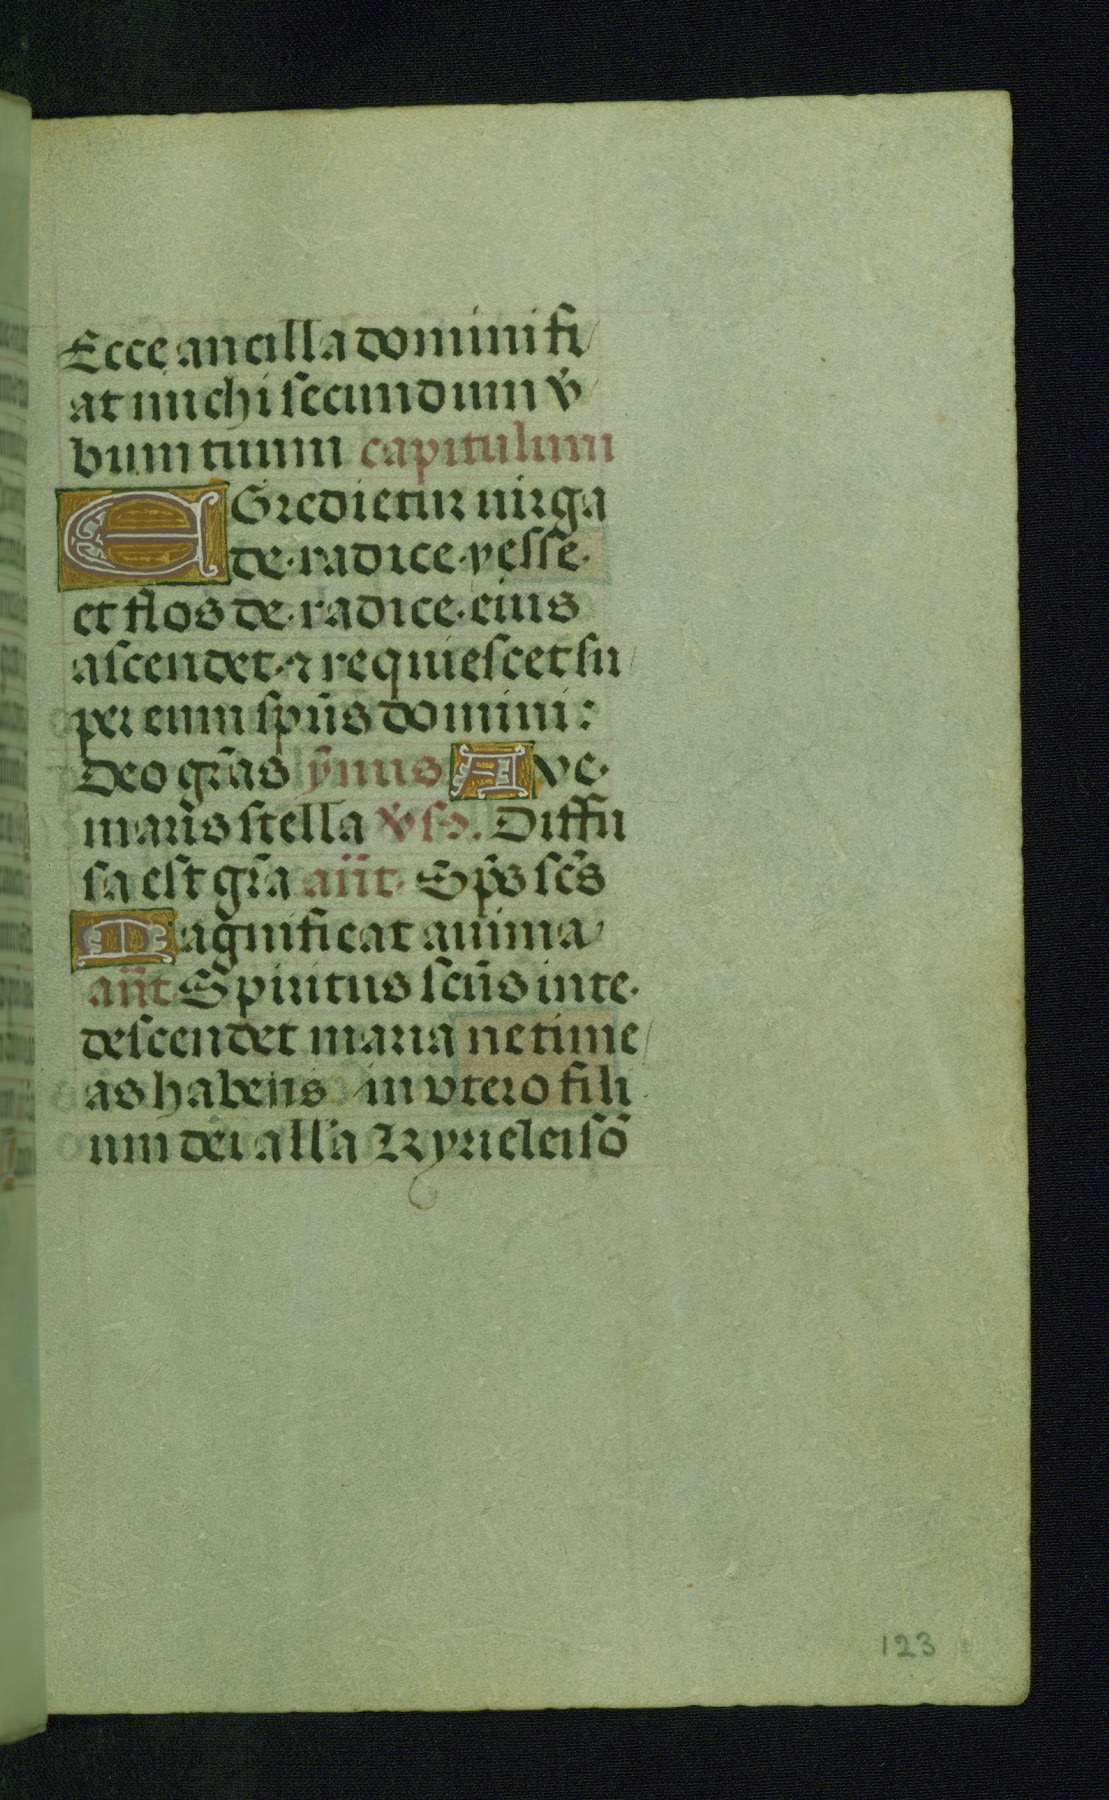 Ecce ancilla domini fi/
at michi secundum v̄/
bum tuum capitulum
EGredietur uirga
de·radice·yesse·
et flos de·radice·eius
ascendet·⁊ requiescet su/
per eum sp̄us domini:
Deo gr̄as ȳnus Ave·
maris stella v̄s. Diffu
sa est gr̄a an̄t· Sp̄s sc̄s
Magnificat anima
an̄t Spiritus sc̄us in te·
descendet maria ne time/
as habens in vtero fili
um dei all'a Kyrieleisō
123